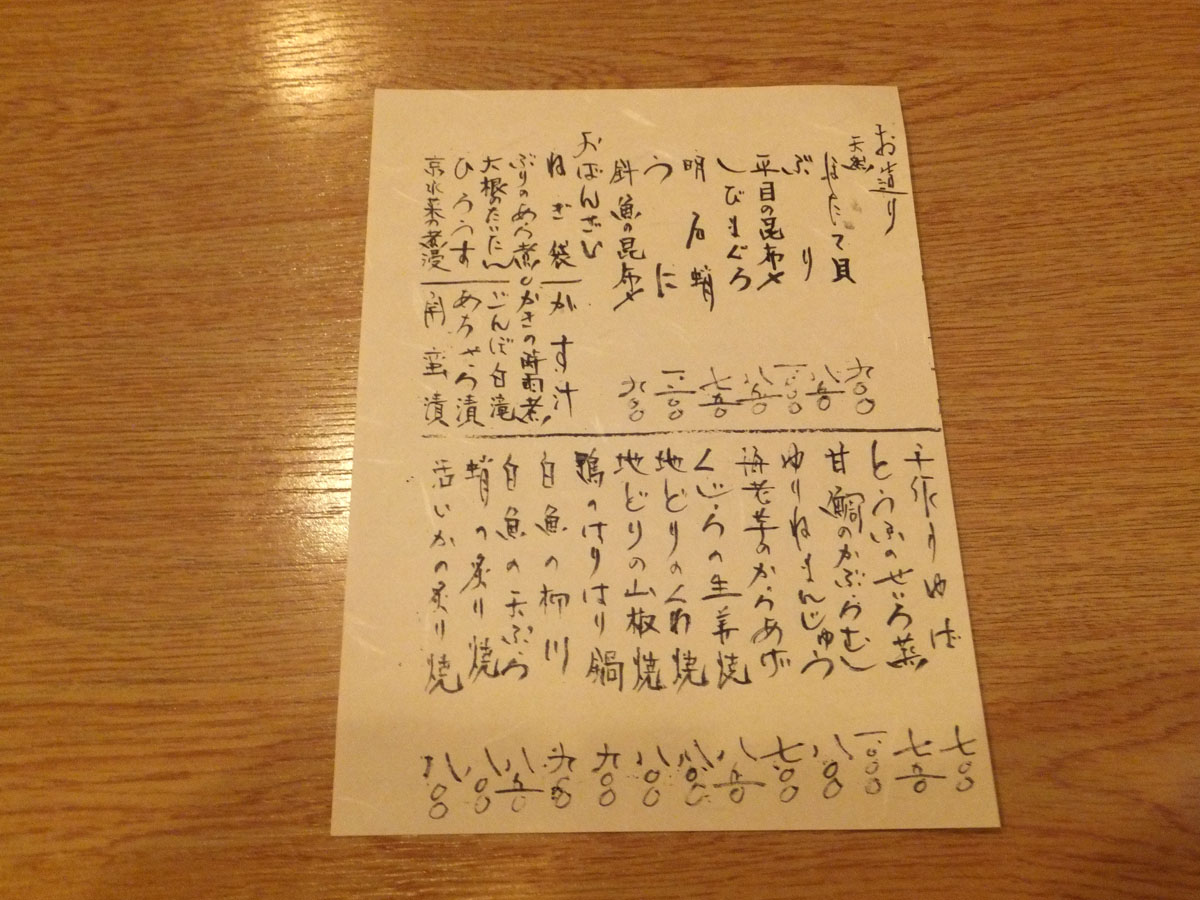 お造り
天然
ほたて貝 九〇〇
ぶり 八五〇
平目の昆布〆 一、〇〇〇
しびまぐろ 八五〇
明石蛸 七五〇
うに
針魚の昆布〆
おばんざい
ねぎ袋
かす汁
ぶりのあら煮
かきの時雨煮
大根のたいたん
ごんぼ白滝
ひろうす
あちゃら漬
京水菜の煮浸
南蛮漬
手作りゆば 七〇〇
とうふのせいろ蒸 七五〇
甘鯛のかぶらむし 一、〇〇〇
ゆりねまんじゅう 八〇〇
海老芋のからあげ 七〇〇
くじらの生姜焼 八五〇
地どりのくわ焼 八〇〇
地どりの山椒焼 八〇〇
鴨のはりはり鍋 九〇〇
白魚の柳川
白魚の天ぷら 八五〇
蛸の炙り焼 八〇〇
活いかの炙り焼 八〇〇